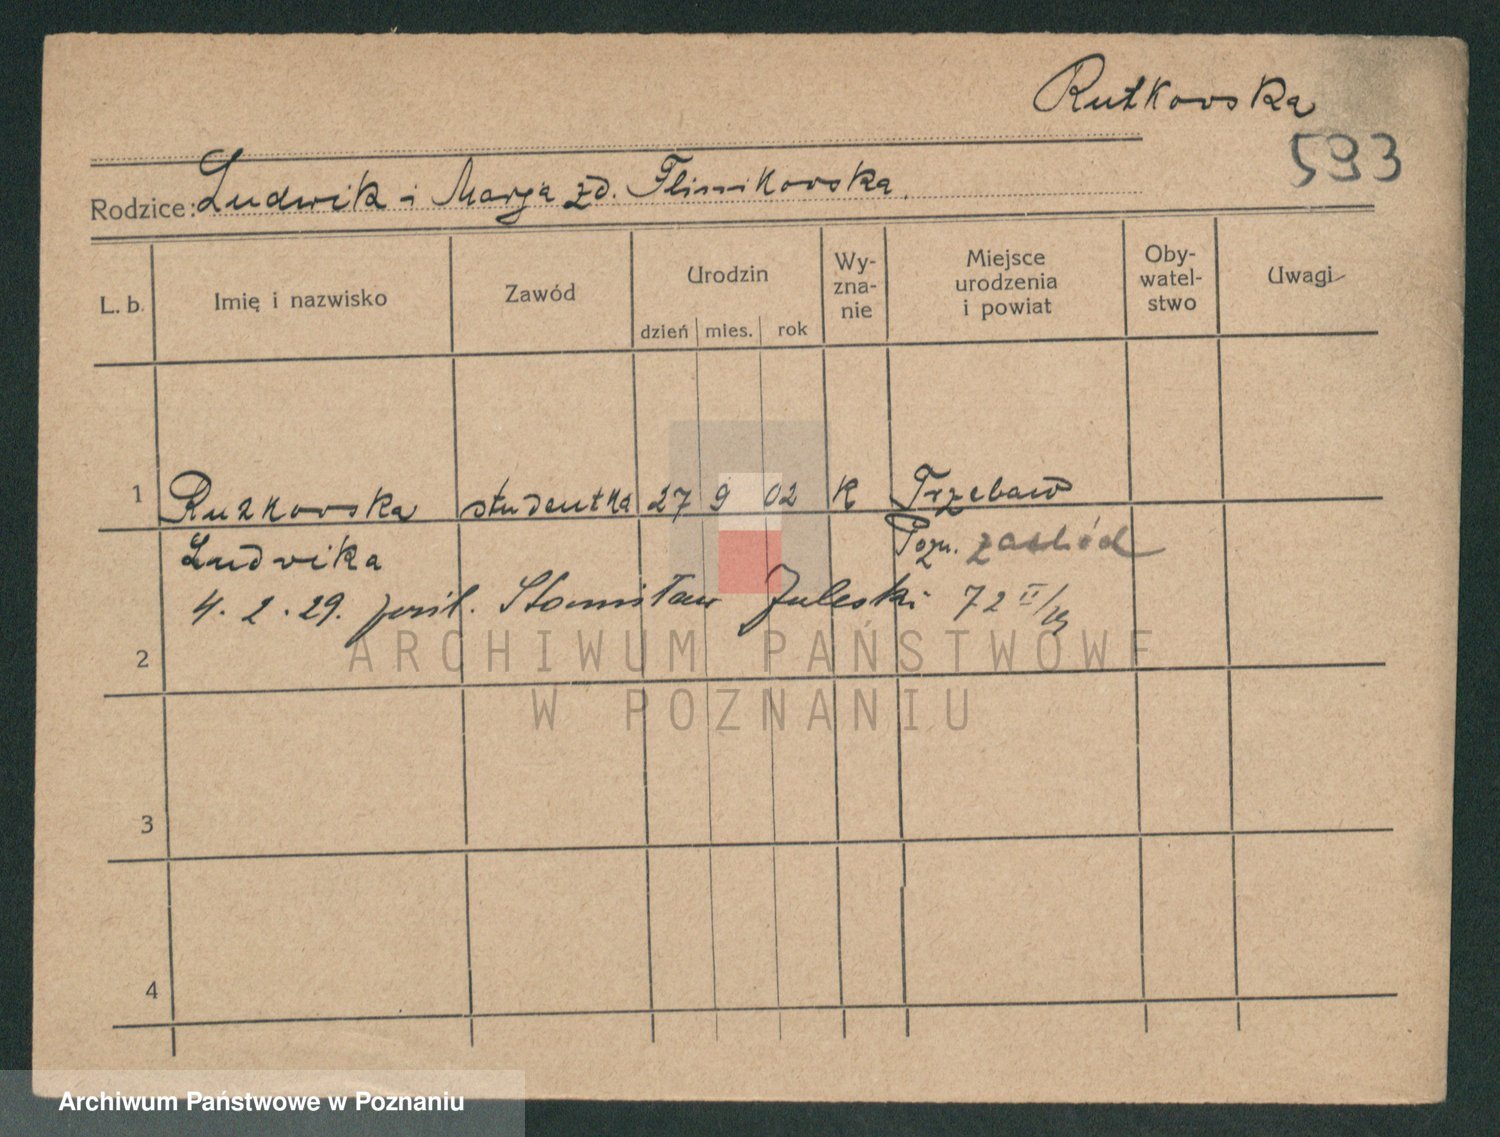 Rutkowska
593
Rodzice: Ludwik i Marja zd. Flinikowska.
L. b. Imię i nazwisko Zawód Urodzin dzień mies. rok Wy-zna-nie Miejsce urodzenia i powiat Oby-watel-stwo Uwagi
1 Rutkowska studentka 27 9 02 K Trzebaw
Ludwika Pozn. zachód
4. 2. 29. Stanisław 72 II/29
2
3
4
ARCHIWUM PAŃSTWOWE
W POZNANIU
Archiwum Państwowe w Poznaniu